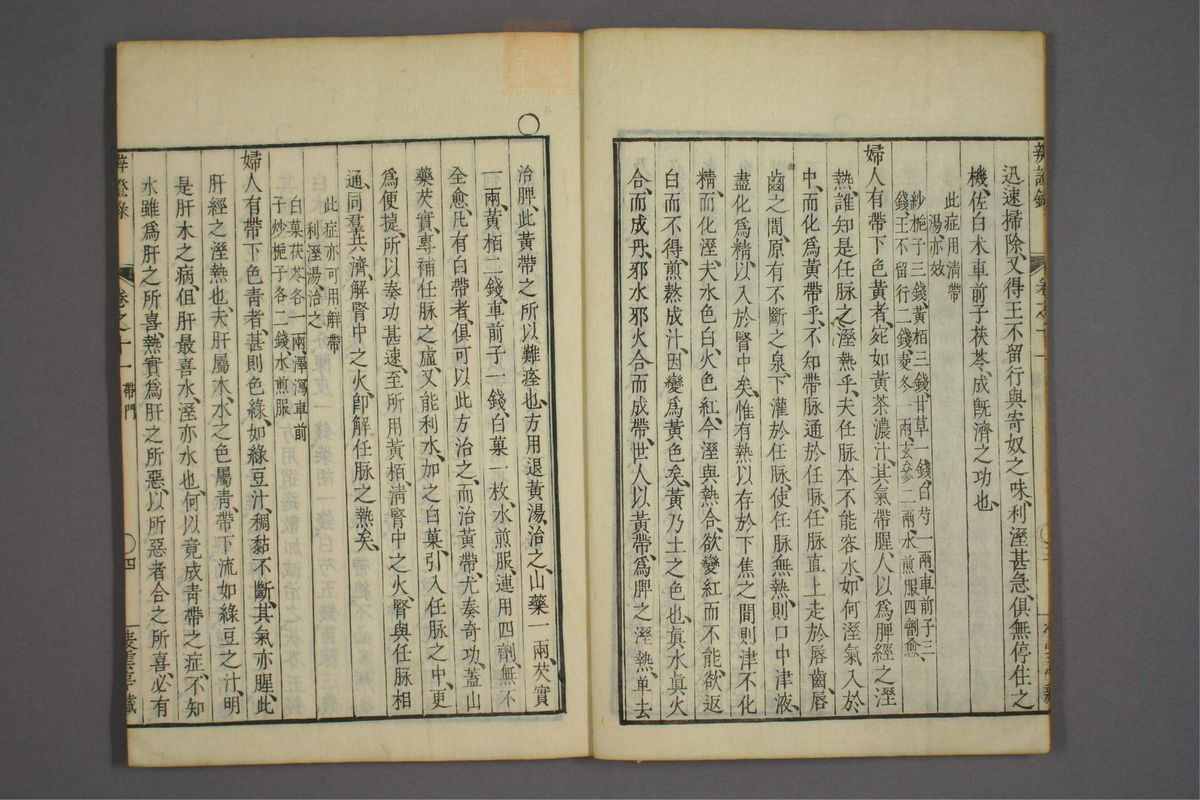 迅速掃除、又得王不留行與寄奴之味、利溼甚急、俱無停住之
機、佐白木車前子茯苓、成旣濟之功也、
此症用淸帶
湯亦效
炒梔子三錢、黃栢三錢、甘草一錢、白芍一兩、車前子三
錢、王不留行二錢、麥冬一兩、玄參二兩、水煎服四劑愈、
婦人有帶下色黃者、宛如黃茶濃汁、其氣帶腥、人以爲脾經之溼
熱、誰知是任脉之溼熱乎、夫任脉本不能容水、如何溼氣入於
中、而化爲黃帶乎、不知帶脉通於任脉、任脉直上走於唇齒、唇
齒之間、原有不斷之泉、下灌於任脉、使任脉無熱、則口中津液、
盡化爲精、以入於腎中矣、惟有熱以存於下焦之間、則津不化
精、而化溼、夫水色白、火色紅、今溼與熱合、欲變紅而不能、欲返
白而不得、煎熬成汁、因變爲黃色矣、黃乃土之色也、眞水眞火
合而成丹、邪水邪火合而成帶、世人以黃帶、爲脾之溼熱、單去
治脾、此黃帶之所以難痊也、方用退黃湯、治之、山藥一兩、芡實
一兩、黃栢二錢、車前子一錢、白菓一枚、水煎服、連用四劑、無不
全愈、凡有白帶者、俱可以此方治之、而治黃帶、尤奏奇功、蓋山
藥芡實、專補任脉之虛、又能利水、加之白菓、引入任脉之中、更
爲便捷、所以奏功甚速、至所用黃栢、淸腎中之火、腎與任脉相
通、同羣共濟、解腎中之火、卽解任脉之熱矣、
此症亦可用解帶
利溼湯治之
白菓茯苓各一兩、澤瀉車前
子炒梔子各二錢、水煎服
婦人有帶下色靑者、甚則色綠、如綠豆汁、稠黏不斷、其氣亦腥、此
肝經之溼熱也、夫肝屬木、木之色屬靑、帶下流如綠豆之汁、明
是肝木之病、但肝最喜水、溼亦水也、何以竟成靑帶之症、不知
水雖爲肝之所喜、熱實爲肝之所惡、以所惡者合之所喜、必有
辨證錄
卷之十一 帶門
四